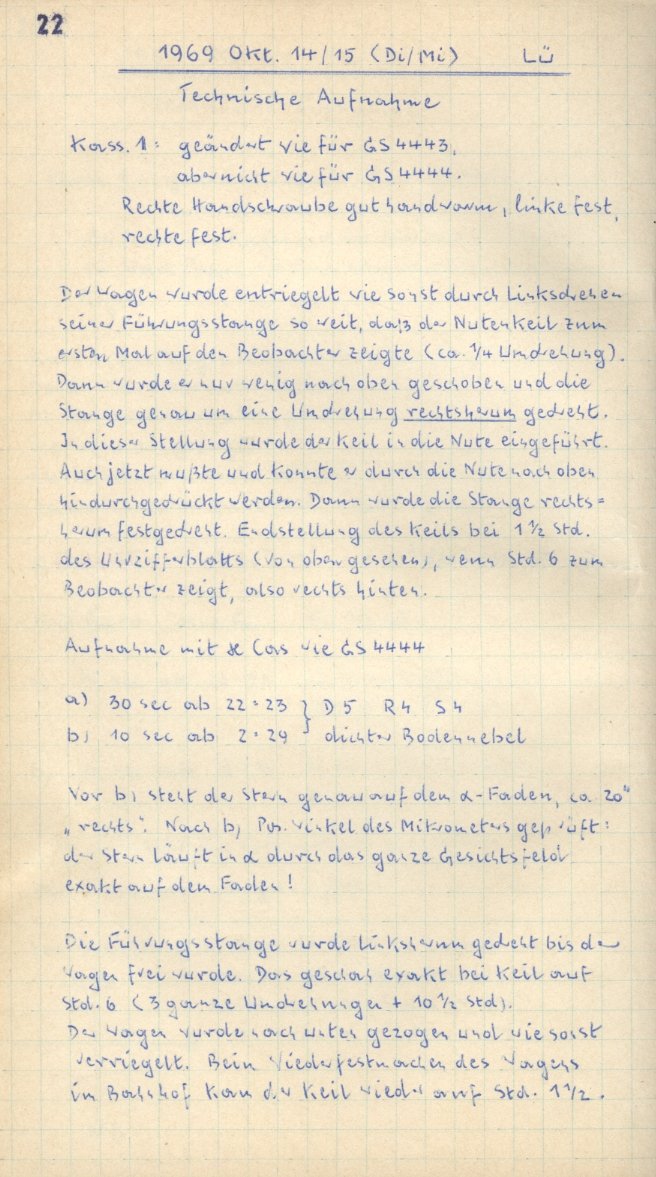 22
1969 Okt. 14/15 (Di/Mi) LÜ
Technische Aufnahme
Kass. 1: geändert wie für GS 4443,
aber nicht wie für GS 4444.
Rechte Handschraube gut handwarm, linke fest,
rechte fest.
Der Wagen wurde entriegelt wie sonst durch Linksdrehen
seiner Führungsstange so weit, daß der Nutenkeil zum
ersten Mal auf den Beobachter zeigte (ca. 1/4 Umdrehung).
Dann wurde er nur wenig nach oben geschoben und die
Stange genau um eine Umdrehung rechtsherum gedreht.
In dieser Stellung wurde der Keil in die Nute eingeführt.
Auch jetzt mußte und konnte er durch die Nute nach oben
hindurchgedrückt werden. Dann wurde die Stange rechts=
herum festgedreht. Endstellung des Keils bei 1 1/2 Std.
des Uhrzifferblatts (von oben gesehen), wenn Std. 6 zum
Beobachter zeigt, also rechts hinten.
Aufnahme mit Cas wie GS 4444
a) 30 sec ab 22:23 } D5 R4 S4
b) 10 sec ab 2:29 dichter Bodennebel
Vor b) steht der Stern genau auf dem α-Faden, ca. 20"
„rechts". Nach b) Pos.winkel des Mikrometers geprüft:
der Stern läuft in α durch das ganze Gesichtsfeld
exakt auf dem Faden!
Die Führungsstange wurde linksherum gedreht bis der
Wagen frei wurde. Das geschah exakt bei Keil auf
Std. 6 (3 ganze Umdrehungen + 10 1/2 Std).
Der Wagen wurde nach unten gezogen und wie sonst
verriegelt. Beim Wiederfestmachen des Wagens
im Bahnhof kam der Keil wieder auf Std. 1 1/2.